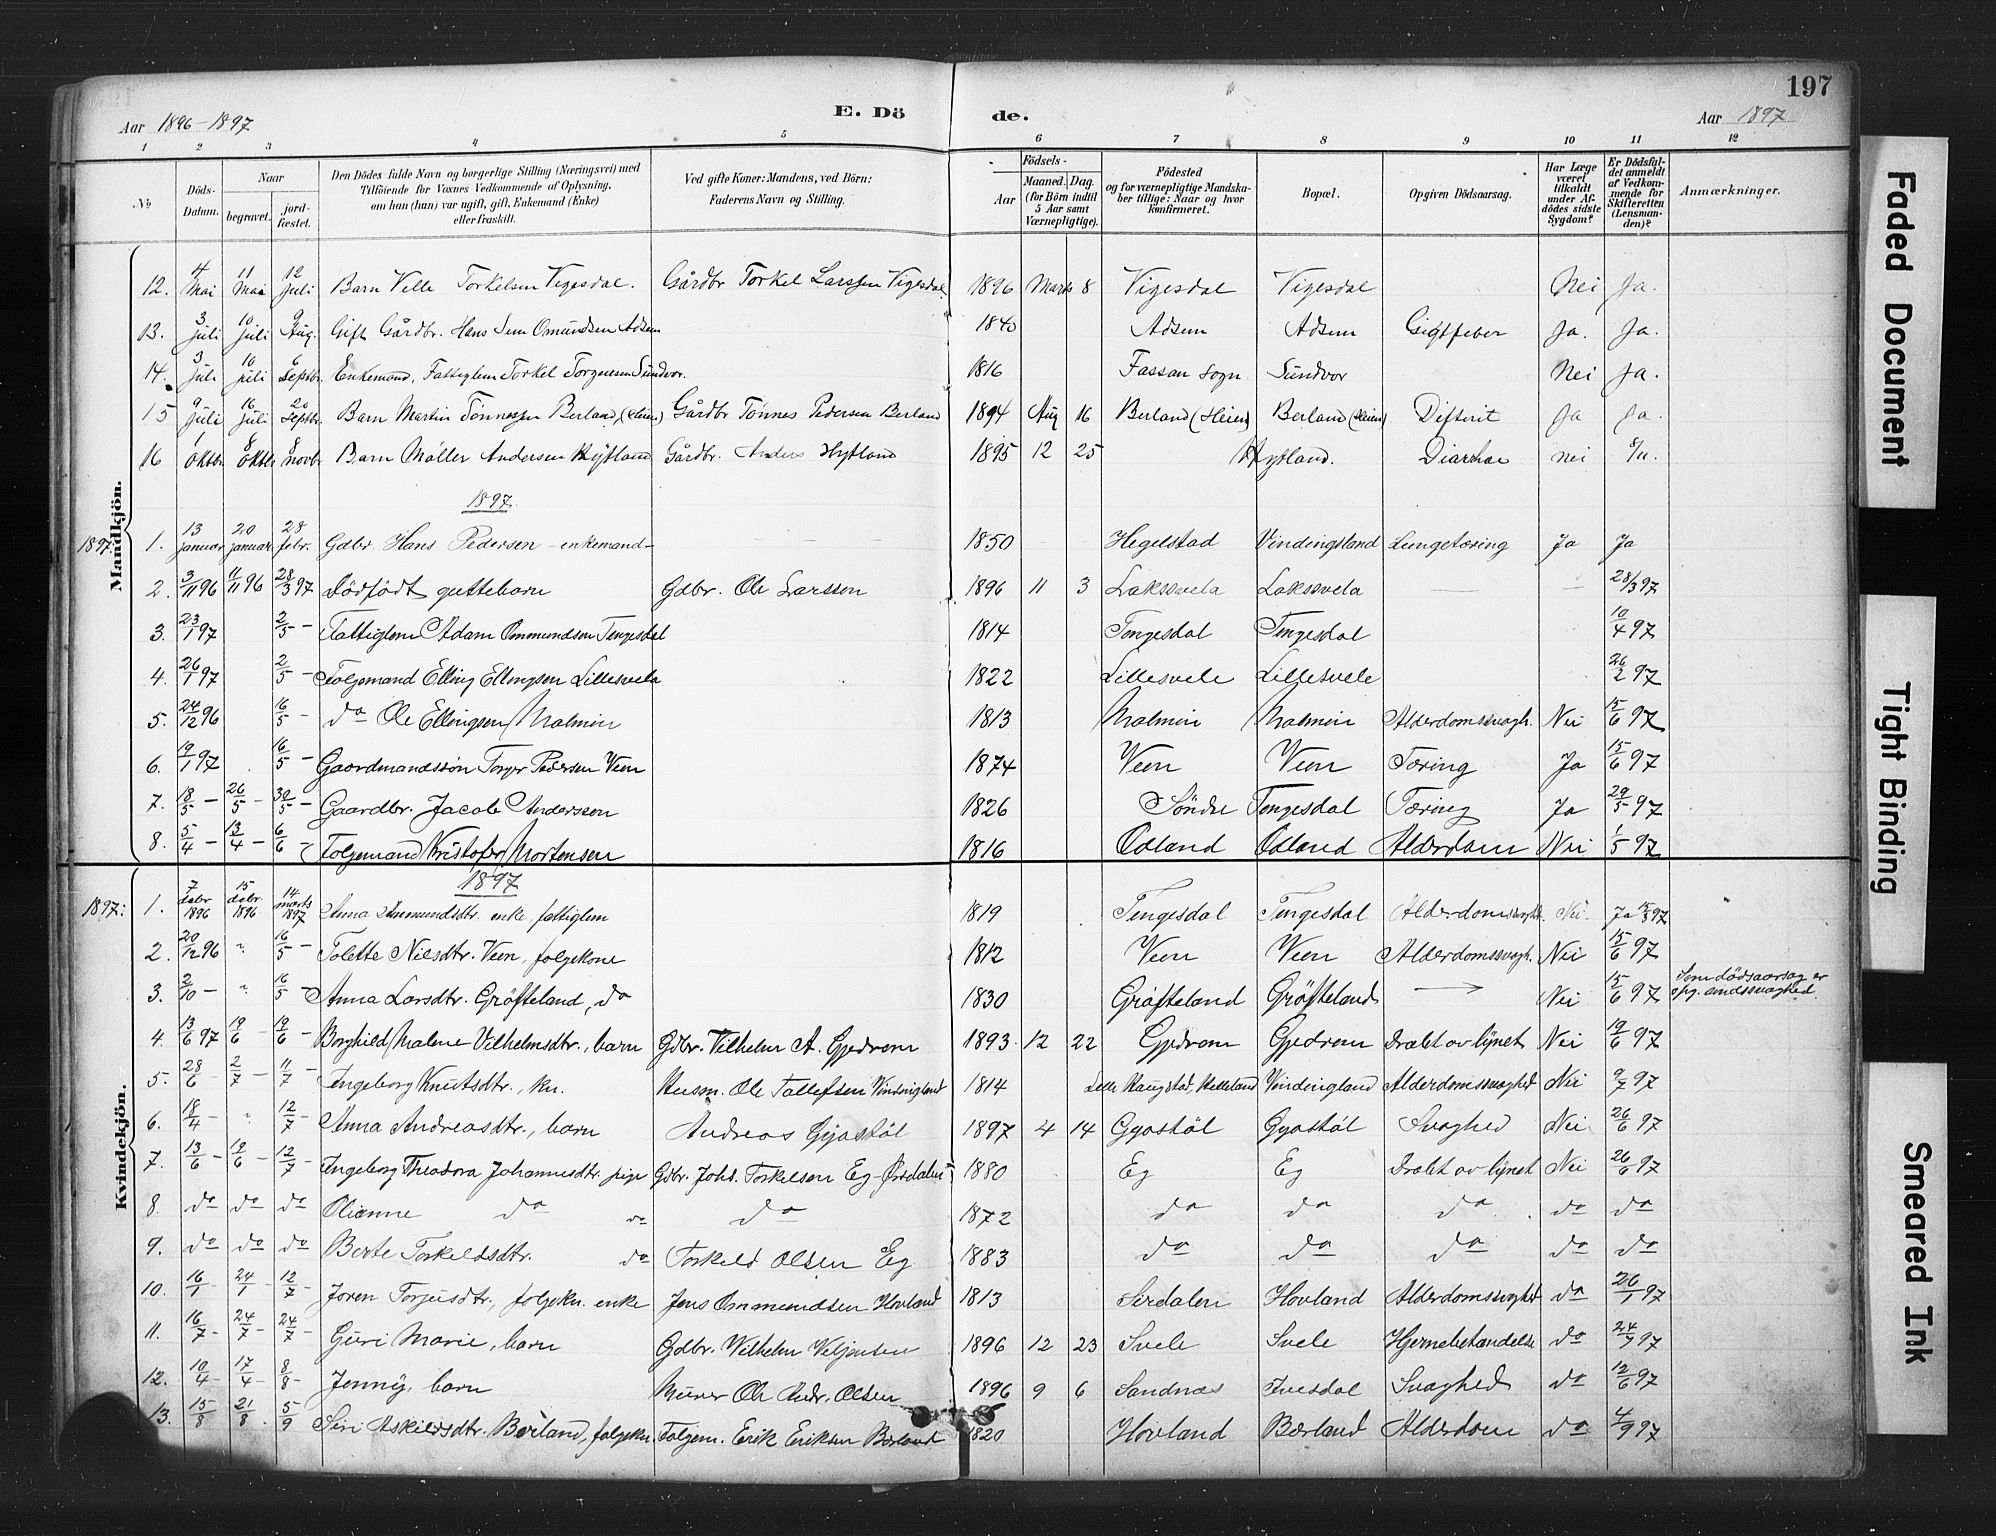 197
Aar 1896-1897 E. Dö de. Aar 1897
1 2 3 4 5 6 7 8 9 10 11 12
No Döds-Datum. Naar begravet. jordfæstet. Den Dödes fulde Navn og borgerlige Stilling (Næringsvei) med Tilföiende for Voxnes Vedkommende af Oplysning, om hun (han) var ugift, gift, Enkemand (Enke) eller fraskilt. Ved gifte Koner: Mandens, ved Börn: Faderens Navn og Stilling. Födsels- Aar Maaned. Dag. (for Börn indtil 5 Aar samt Værnepligtige). Födested og for værnepligtige Mandskaber tillige: Naar og hvor konfirmeret. Bopæl. Opgiven Dödsaarsag. Har Læge været tilkaldt under Afdödes sidste Sygdom? Er Dödsfaldet anmeldt af Vedkommende for Skifteretten (Lensmanden)? Anmærkninger.
Mandkjön.
12. 4 Mai 11 Mai 12 Juli Barn Ville Torkelsen Vigesdal. Gårdbr Torkel Larssen Vigesdal 1896 Marts 8 Vigesdal Vigesdal Nei Ja.
13. 3 Juli 10 Juli 9 Aug. Gift Gårdbr. Hans Sem Omundsen Adsem 1840 Adsem Adsem Gigtfeber Ja. Ja.
14. 3 Juli 10 Juli 6 Septbr. Enkemand, Fattiglem Torkel Torgersen Sundvor. 1816 Fossan Sogn Sundvor Nei Ja.
15 9 Juli 16 Juli 20 Septbr. Barn Martin Tönnessen Berland, (Heien) Gårdbr Tönnes Pedersen Berland 1894 Aug 16 Berland (Heien) Berland (Heien) Difterit Ja Ja.
16 1 Oktbr 8 Oktbr 8 novbr Barn Möller Andersen Hytland Gårdbr. Anders Hytland 1895 12 25 Hytland. Diarrhae nei 8/11.
1897
1897: 1. 13 januar 20 januar 28 febr. Gdbr. Hans Pedersen - enkemand - 1850 Hegelstad Vindingsland Lungetæring Ja Ja
2. 3/11 96 11/11 96 28/3 97 Dödfödt guttebarn Gdbr. Ole Larsson 1896 11 3 Lakssvela Lakssvela — — 28/3 97
3. 23/1 97 2/5 - Fattiglem Adam Ommundson Tengesdal 1814 Tengesdal Tengesdal 10/4 97
4. 26/1 97 2/5 - Folgemand Elling Ellingsen Lillesvela 1822 Lillesvele Lillesvele 26/2 97
5. 24/12 96 16/5 - do Ole Ellingsen Malmin 1813 Malmin Malmin Alderdomssvagh. Nei 15/6 97
6. 19/1 97 16/5 - Gaardmandssön Torger Pedersen Veen 1874 Veen Veen Tæring Ja 15/6 97
7. 18/5 - 26/5 - 30/5 - Gaardbr. Jacob Andersson 1826 Söndre Tengesdal Tæring Ja 29/5 97
8. 5/4 - 13/4 - 6/6 - Folgemand Kristofer Mortensen 1816 Ödland Ödland Alderdom Nei 1/5 97
Kvindekjön.
1897
1897: 1. 7 debr 1896 15 debr. 1896 14 marts 1897 Anna Ammundsdtr. enke fattiglem 1819 Tengesdal Tengesdal Alderdomssvaghd. Nei Ja 15/3 97
2. 20/12 96 " 16/5 - Tolette Nilsdtr. Veen, folgekone 1812 Veen Veen Alderdomssvagh. Nei 15/6 97
3. 2/10 - " 16/5 - Anna Larsdtr. Gröfteland, do 1830 Gröfteland Gröfteland Nei 15/6 97 Som dödsaarsag er opg. aandssvaghed.
4. 13/6 97 19/6 - 19/6 - Borghild Malene Vilhelmsdtr., barn Gdbr. Vilhelm A. Gjedrem 1893. 12 22 Gjedrem Gjedrem Dræbt av lynet Nei 19/6 97
5. 28/6 - 2/7 - 11/7 - Ingeborg Knutsdtr., kn. Husm. Ole Tallefsen Vindingland 1814 Lille Haugstad, Helleland Vindingland Alderdomssvaghed Nei 9/7 97
6. 18/4 - " 12/7 - Anna Andreasdtr., barn Andreas Gyastöl 1897 4 14 Gyastöl Gyastöl Svaghed Nei 26/6 97
7. 13/6 - 19/6 - 12/7 - Ingeborg Theodora Johannesdtr. pige Gdbr. Johs. Torkelsen Eg - Örsdalen 1880 Eg Eg Dræbt av lynet Nei 26/6 97
8. do do do Olianne do do do 1872 do do do do do
9. do do do Berte Torkeldsdtr. do Torkeld Olsen Eg 1883 do do do do do
10. 16/1 - 24/1 - 12/7 - Joren Torjusdtr., folgekn. enke Jens Ommundsen Hovland 1813 Sirdalen Hovland Alderdomssvghed do 26/1 97
11. 16/7 - 24/7 - 24/7 - Guri Marie, barn Gdbr. Wilhelm Veljensen 1896 12 23 Svele Svele Hjernebetændelse do 24/7 97
12. 10/4 - 17/4 - 8/8 - Jenny, barn Murer Ole Andr. Olsen 1896 9 6 Sandnæs Ivesdal Svaghed do 12/6 97
13. 15/8 21/8 5/9 Siri Askildsdtr. Berland, folgekn. Folgem. Erik Eriksen Berland 1820 Hovland Bærland Alderdom do 4/9 97
Faded Document
Tight Binding
Smeared Ink